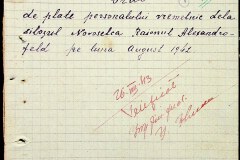 de plata personalului vremelnic dela
silozul Novoselca Raionul Alexandro-
feld pe luna August 1942
26 III 43
Verificat